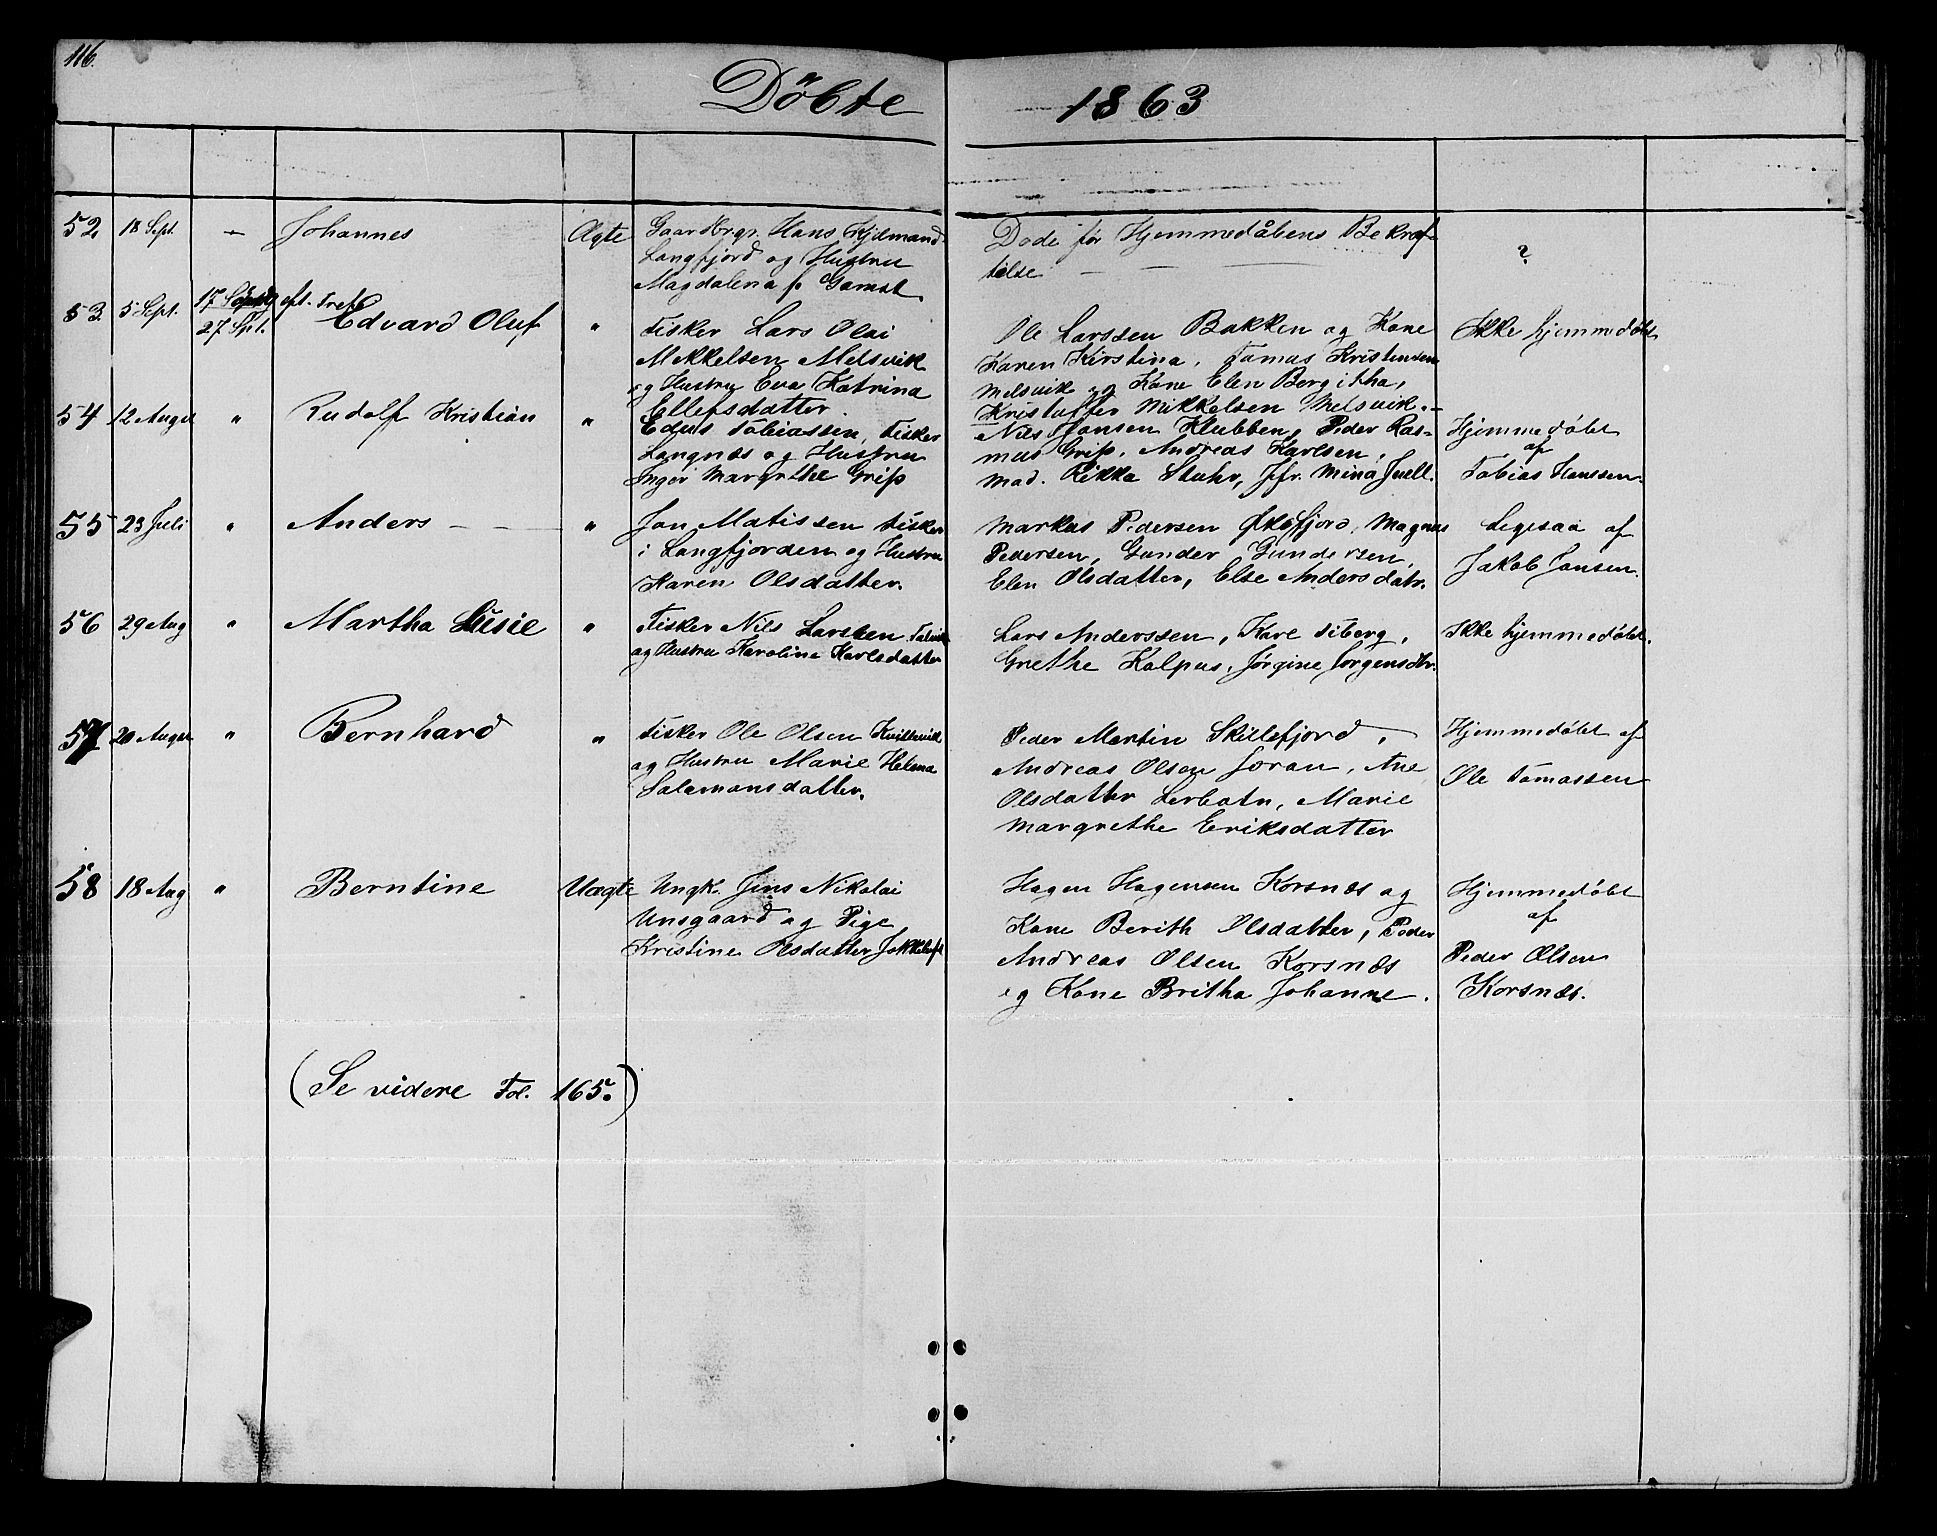 116.
Döbte 1863
52 18 Sept. — Johannes Ægte Gaardbrgr. Hans Hjemand Døde før Hjemmedåbens Bekræf- ?
Langfjord og Hustru telse — — —
Magdalena f. Gamst
53 5 Sept. 17 Septbg eft. Tref. Edvard Oluf " Fisker Lars Olai Ole Larssen Bakken og Kone Ikke hjemmedøbt
27 Spt. Mikkelsen Melsvik Karen Kirstina, Tomas Kristensen
og Hustru Eva Katrina Melsvik og Kone Elen Bergitha,
Ellefsdatter. Kristoffer Mikkelsen Melsvik.—
54 12 August " Rudolf Kristian " Edus Tobiassen, Fisker Nils Jansen Klubben, Peder Ras- Hjemmedøbt
Langnæs og Hustru mus Grip, Andreas Karlsen, af
Inger Margrethe Grip Mad. Rikka Stuhr, Jfr. Mina Juell. Tobias Hanssen.
55 23 Juli " Anders — — " Jon Matissen Fisker Markus Pedersen Øksfjord, Magnus Ligesaa af
i Langfjorden og Hustru Pedersen, Gunder Gundersen, Jakob Jansen.
Karen Olsdatter. Elen Olsdatter, Else Andersdatr.
56 29 Aug " Martha Lusie " Fisker Nils Larssen Talvik Lars Anderssen, Kare Siberg, Ikke hjemmedøbt.
og Hustru Karoline Karlsdatter Grethe Kalpus, Jørgine Jørgensdtr.
57 20 August " Bernhard " Fisker Ole Olsen Kviltevik Peder Martin Skillefjord, Hjemmedøbt af
og Hustru Marie Helena Andreas Olsen Joran, Ane Ole Tomassen
Salamonsdatter. Olsdatter Lerbotn, Marie
Margrethe Eriksdatter
58 18 Aug " Berntine Uægte Ungk. Jens Nikolai Hagen Hagensen Korsnæs og Hjemmedøbt
Unsgaard og Pige Kone Berith Olsdatter, Peder af
Kristine Olsdatter Jokkeluft Andreas Olsen Korsnæs Peder Olsen
og Kone Britha Johanne. Korsnæs.
(Se videre Fol. 165.)